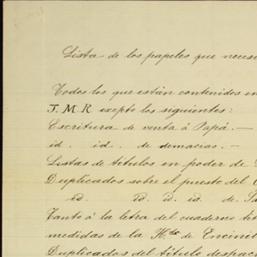 Lista de los papeles que neces
Todos los que están contenidos en
J. M. R. exepto los siguientes:
Escritura de venta á Papá. —
id. id. de demacias. —
Listas de títulos en poder de
Duplicados sobre el puesto del
id. id. id. id. de
Tanto á la letra del cuaderno
medidas de la Hda de Encini
Duplicados del título despac